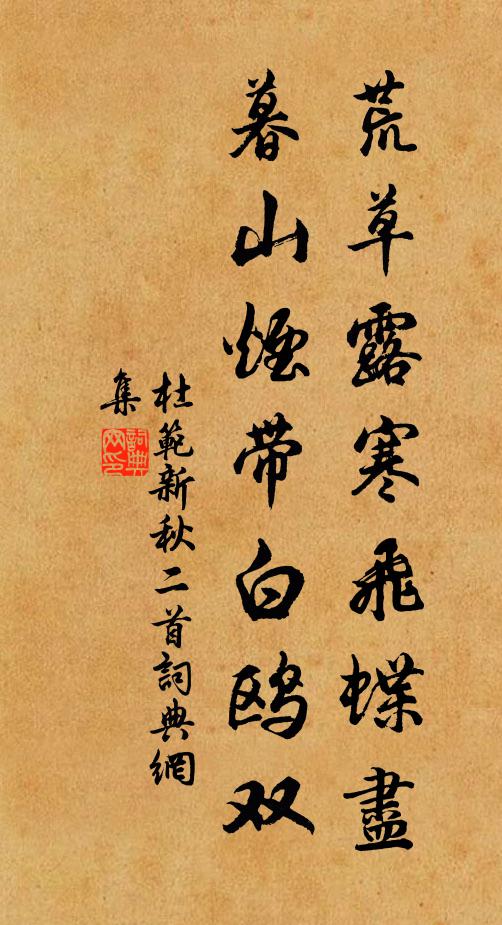 荒草露寒飛蝶盡
暮山煙带白鸥双
杜範新秋二首詞典網
集
詞典
网印